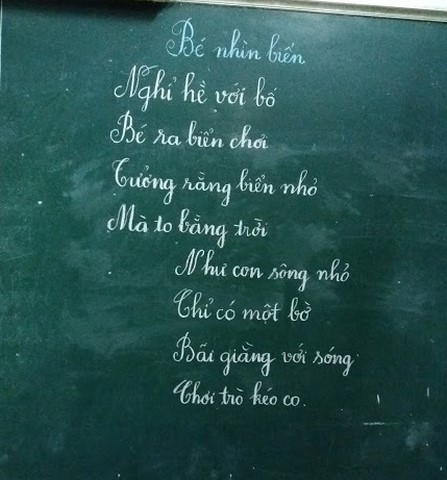 Bé nhìn biển
Nghỉ hè với bố
Bé ra biển chơi
Tưởng rằng biển nhỏ
Mà to bằng trời
Như con sông nhỏ
Chỉ có một bờ
Bãi giằng với sóng
Chơi trò kéo co.